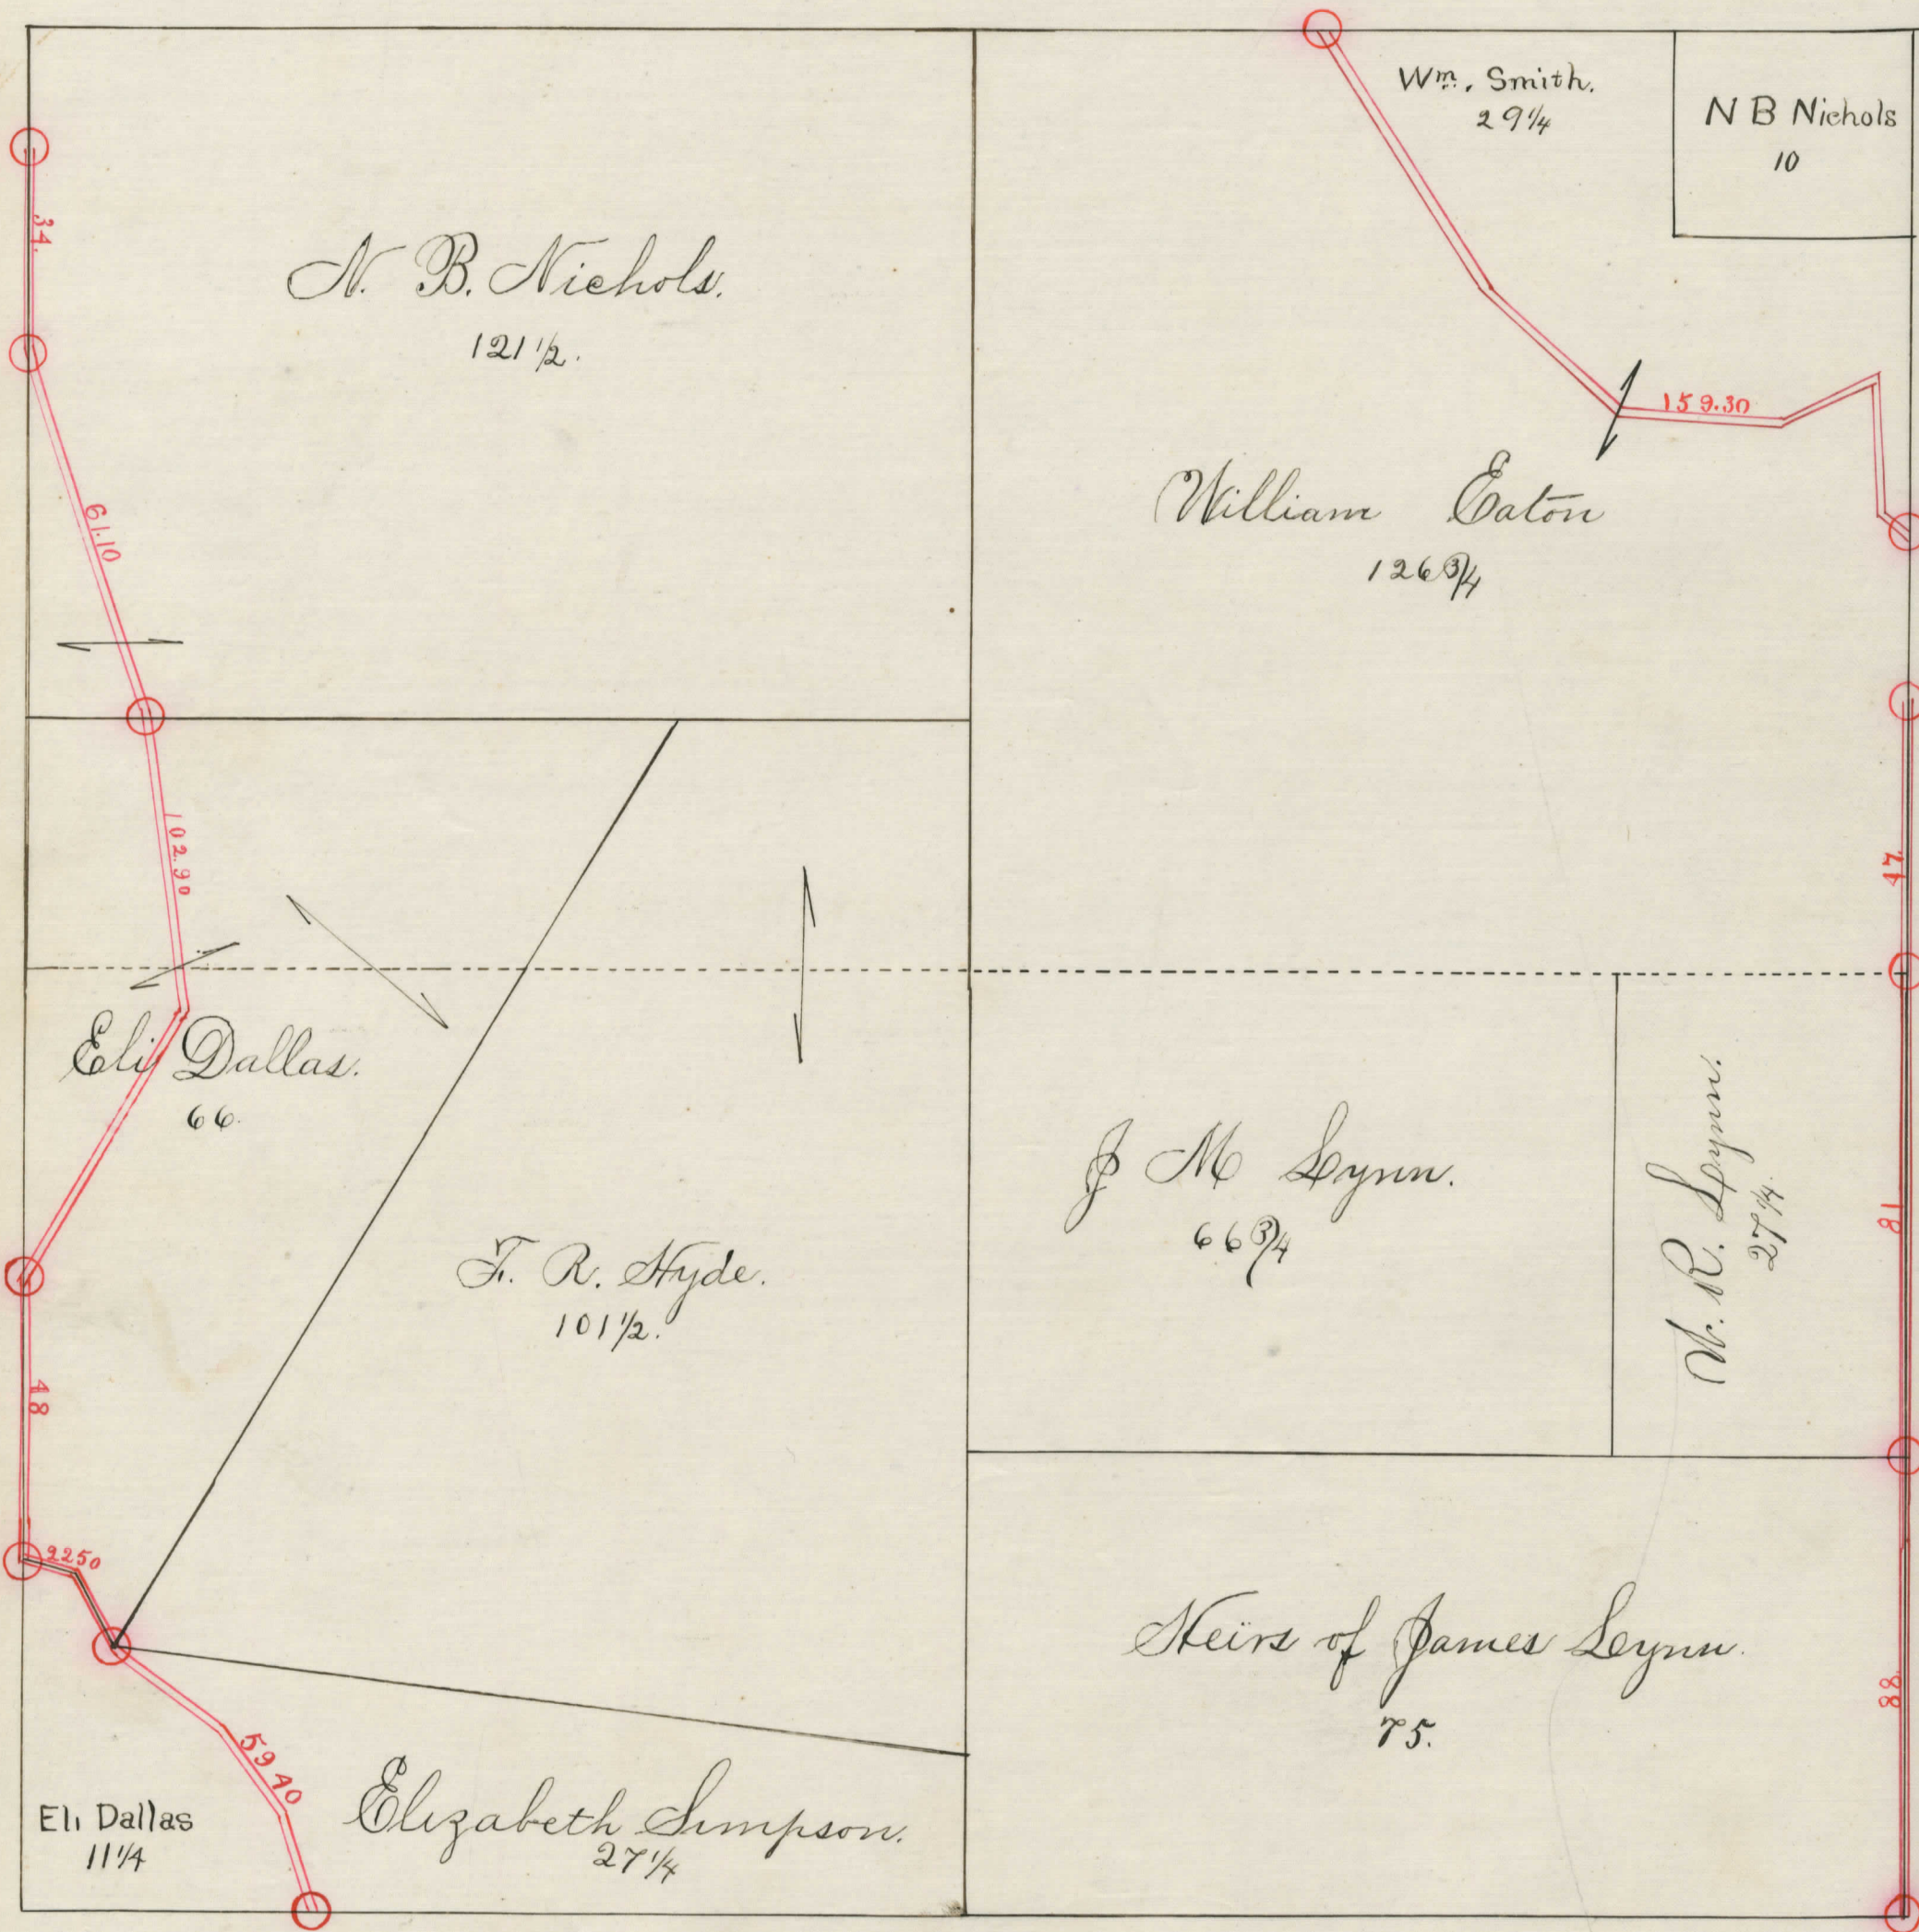 Wm. Smith.
29 1/4
N B Nichols
10
34.
N. B. Nichols.
121 1/2.
159.30
William Eaton
126 3/4
61.10
102.90
47.
Eli Dallas.
66.
J M Lynn.
66 3/4
R. Lynn.
27 1/4.
81
F. R. Hyde.
101 1/2.
48
2250
Heirs of James Lynn.
75.
88
5940
Eli Dallas
11 1/4
Elizabeth Simpson.
27 1/4